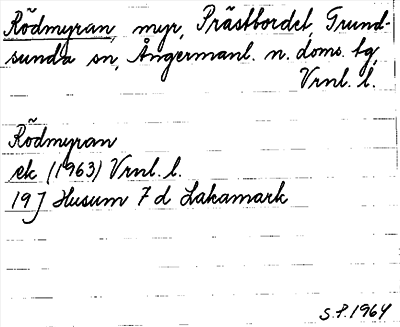 Rödmyran, myr, Prästbordet, Grund-
sunda sn, Ångermanl. n. doms. tg,
Vrnl. l.
Rödmyran
ek (1963) Vrnl. l.
19 J Husum 7 d Lakamark
S.P. 1964